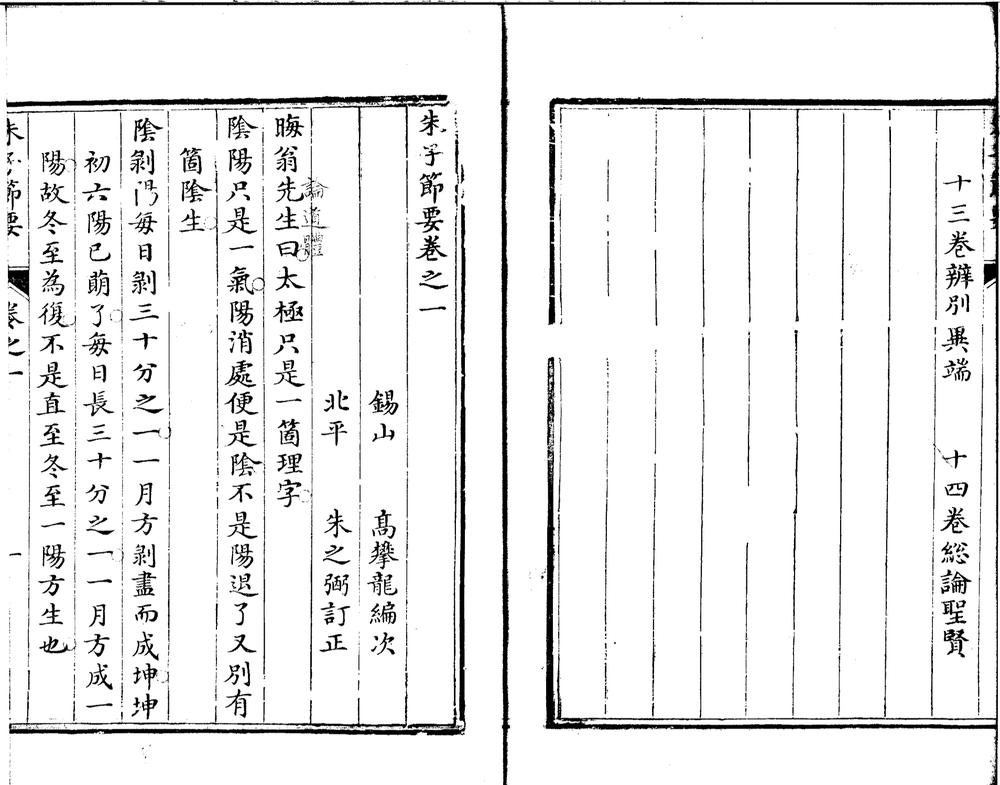 十三卷辨別異端 十四卷総論聖賢
朱子節要卷之一
錫山 髙攀龍編次
北平 朱之弼訂正
論道體
晦翁先生曰太極只是一箇理字
陰陽只是一氣陽消處便是陰不是陽退了又別有
箇陰生
陰剝陽每日剝三十分之一一月方剝盡而成坤坤
初六陽已萠了每日長三十分之一一月方成一
陽故冬至為復不是直至冬至一陽方生也
朱子節要 卷之一 一